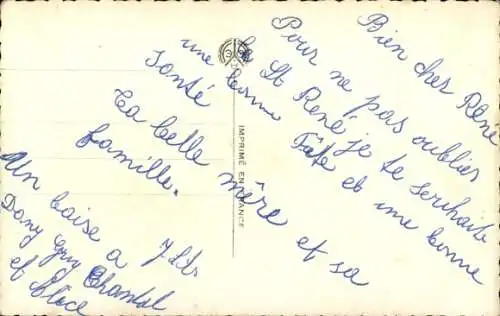 Bien cher René
Pour ne pas oublier
la St René je te souhaite
une bonne Fête et une bonne
santé
Ta belle mère et sa
famille.
Un baise a
Dany Guy Chantal
et
IMPRIMÉ EN FRANCE